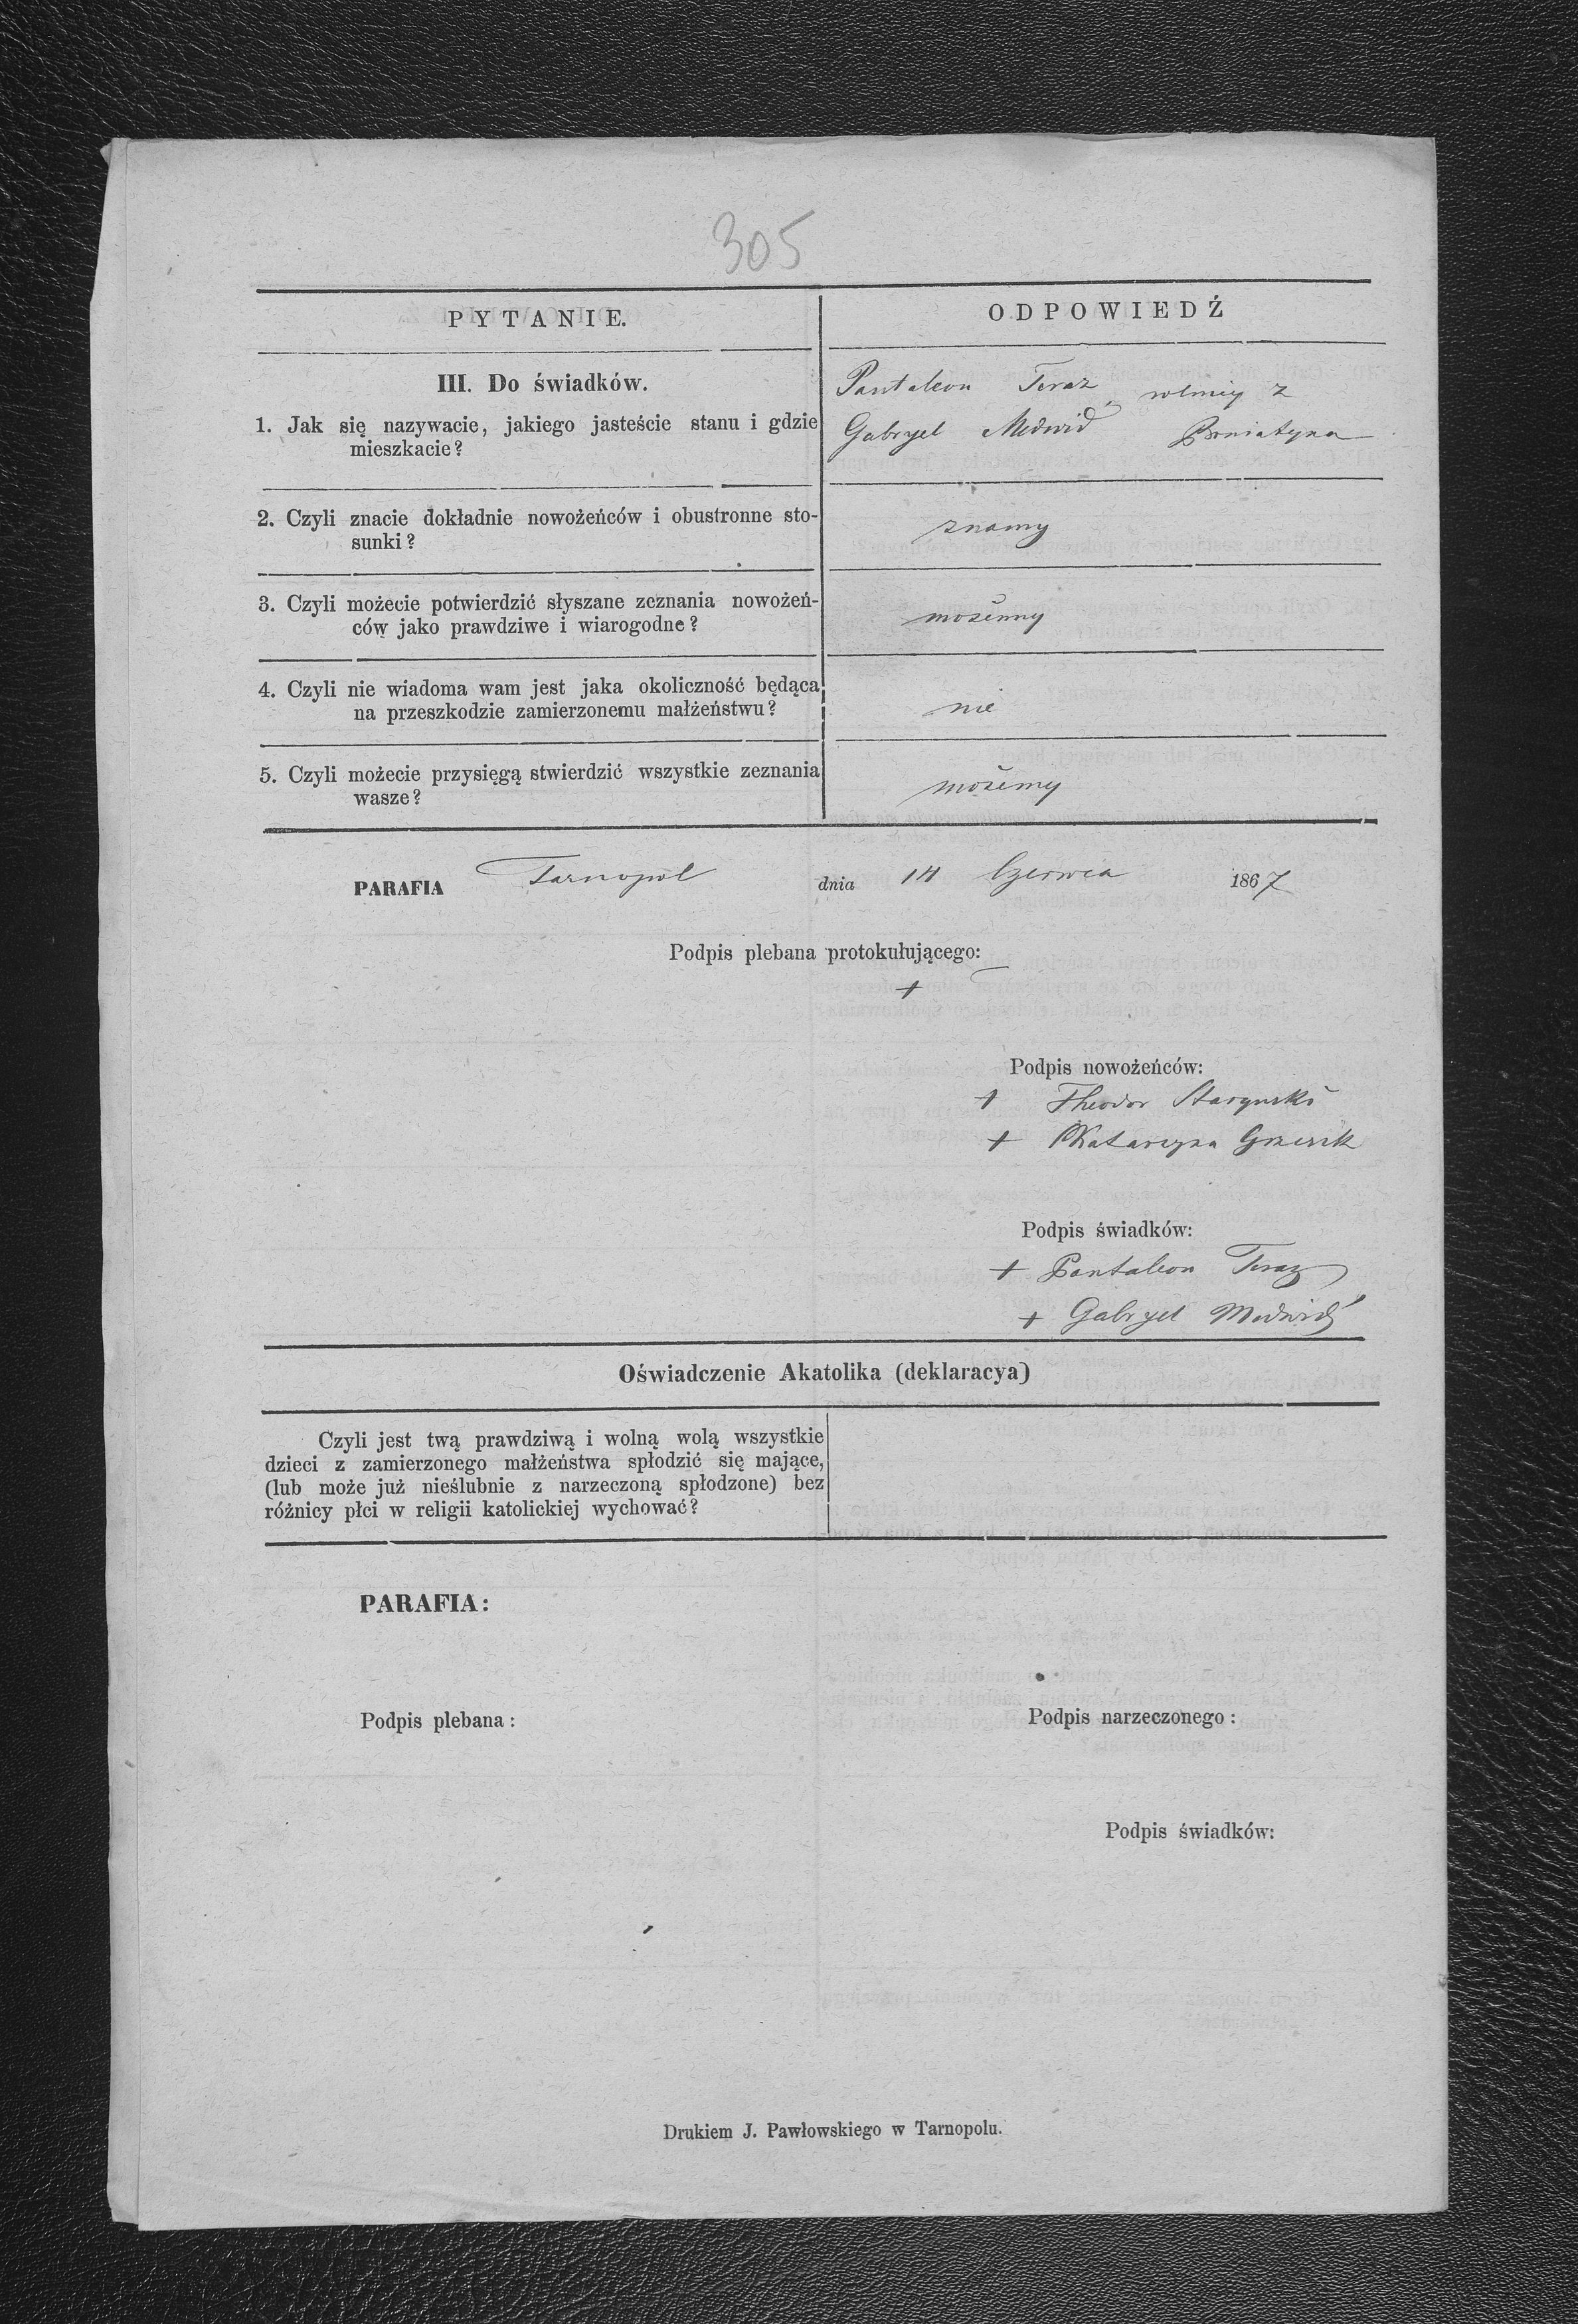 305
PYTANIE.
ODPOWIEDŹ
III. Do świadków.
1. Jak się nazywacie, jakiego jasteście stanu i gdzie
mieszkacie?
Pantaleon Teraz rolnicy z
Gabryel Medwid
2. Czyli znacie dokładnie nowożeńców i obustronne sto-
sunki?
znamy
3. Czyli możecie potwierdzić słyszane zeznania nowożeń-
ców jako prawdziwe i wiarogodne?
możemy
4. Czyli nie wiadoma wam jest jaka okoliczność będąca
na przeszkodzie zamierzonemu małżeństwu?
nie
5. Czyli możecie przysięgą stwierdzić wszystkie zeznania
wasze?
możemy
PARAFIA Tarnopol dnia 14 Czerwca 1867
Podpis plebana protokułującego:
+
Podpis nowożeńców:
+ Theodor
+ Katarzyna
Podpis świadków:
+ Pantaleon Teraz
+ Gabryel Medwid
Oświadczenie Akatolika (deklaracya)
Czyli jest twą prawdziwą i wolną wolą wszystkie
dzieci z zamierzonego małżeństwa spłodzić się mające,
(lub może już nieślubnie z narzeczoną spłodzone) bez
różnicy płci w religii katolickiej wychować?
PARAFIA:
Podpis plebana:
Podpis narzeczonego:
Podpis świadków:
Drukiem J. Pawłowskiego w Tarnopolu.